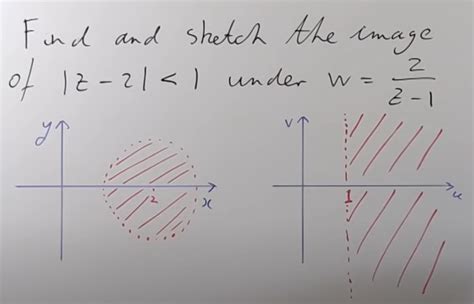 Find and sketch the image
of |z - 2| < 1 under w = 2/(z - 1)
y
2
x
v
1
u